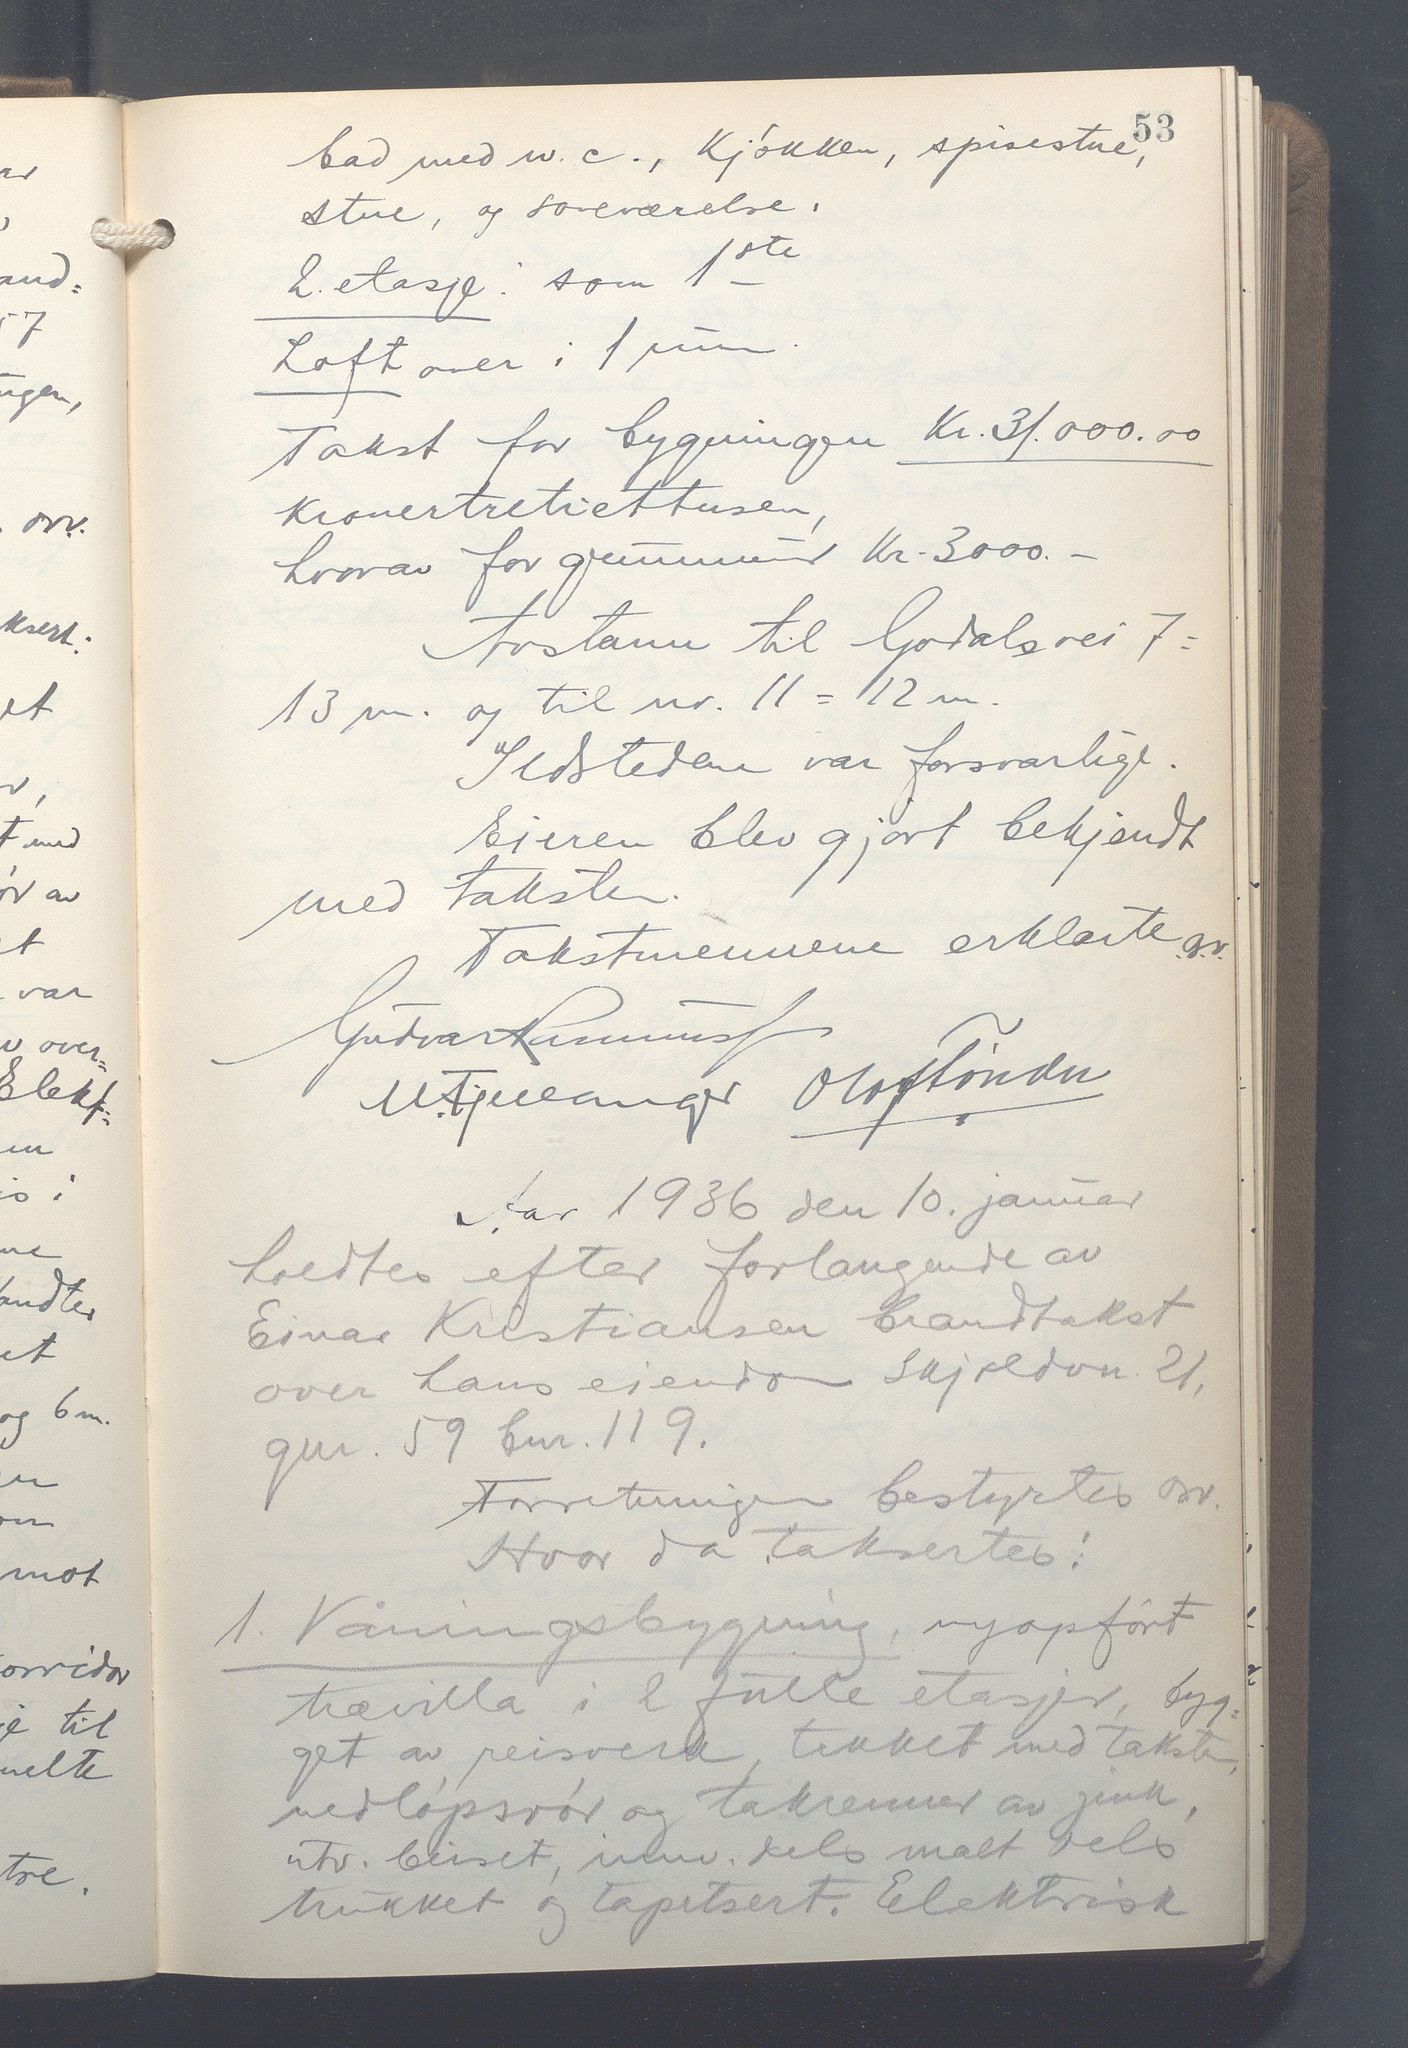 53
bad med w.c., kjökken, spisestue,
stue, og soveværelse.
2. etasje: som 1ste
Loft over i 1 rum.
Takst for bygningen Kr. 31.000.00
kronertretiettusen,
hvorav for grunnmur Kr. 3000.-
Avstann til Godalsvei 7 =
13 m. og til nr. 11 = 12 m.
Ildstedene var forsvarlige.
Eieren blev gjort bekjendt
med taksten.
Takstmennene erklærte osv.
Olaf Tönder
Aar 1936 den 10. januar
holdtes efter forlangende av
Einar Kristiansen brandtakst
over hans eiendom Skjoldvn. 21,
gnr. 59 bnr. 119.
Forretningen bestyrtes osv.
Hvor da taksertes:
1. Våningsbygning, nyopfört
trævilla i 2 fulle etasjer, byg=
get av reisverk, tekket med taksten,
nedlöpsrör og takrenner av zink,
utv. beiset, innv. dels malt dels
trukket og tapetsert. Elektrisk
and=
57
ngen,
osv.
ksert:
et
t med
ör av
et
var
over=
Elekt=
en
is i
ne
andtes
et
og 6 m.
en
om
mot
orridor
je til
melte
tre.